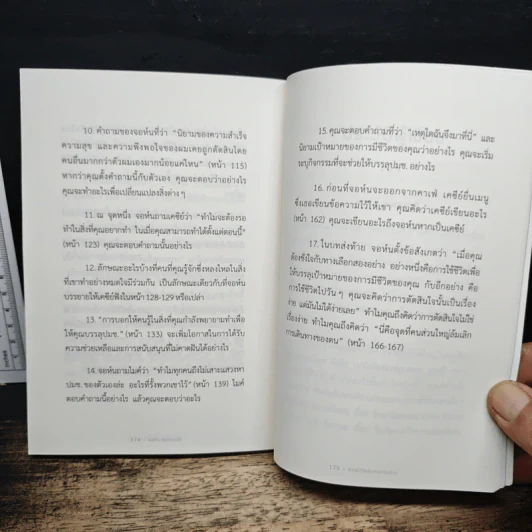 10. คำถามของจอห์นที่ว่า "นิยามของความสำเร็จ
ความสุข และความพึงพอใจของผมเคยถูกตัดสินโดย
คนอื่นมากกว่าตัวผมเองมากน้อยแค่ไหน" (หน้า 115)
หากคุณตั้งคำถามนี้กับตัวเอง คุณจะตอบว่าอย่างไร
คุณจะทำอะไรเพื่อเปลี่ยนแปลงสิ่งต่าง ๆ
11. ณ จุดหนึ่ง จอห์นถามเคซีย์ว่า "ทำไมจะต้องรอ
ทำในสิ่งที่คุณอยากทำ ในเมื่อคุณสามารถทำได้ตั้งแต่ตอนนี้"
(หน้า 123) คุณจะตอบคำถามนั้นอย่างไร
12. ลักษณะอะไรบ้างที่คนที่คุณรู้จักซึ่งหลงใหลในสิ่ง
ที่เขาทำอย่างหมดใจมีร่วมกัน เป็นลักษณะเดียวกับที่จอห์น
บรรยายให้เคซีย์ฟังในหน้า 128-129 หรือเปล่า
13. "การบอกให้คนรู้ในสิ่งที่คุณกำลังพยายามทำเพื่อ
ให้คุณบรรลุปมช." (หน้า 133) จะเพิ่มโอกาสในการได้รับ
ความช่วยเหลือและการสนับสนุนที่ไม่คาดฝันได้อย่างไร
14. จอห์นถามไมค์ว่า "ทำไมทุกคนถึงไม่เสาะแสวงหา
ปมช. ของตัวเองล่ะ อะไรที่รั้งพวกเขาไว้" (หน้า 139) ไมค์
ตอบคำถามนี้อย่างไร แล้วคุณจะตอบว่าอะไร
15. คุณจะตอบคำถามที่ว่า "เหตุใดฉันจึงมาที่นี่" และ
นิยามเป้าหมายของการมีชีวิตของคุณว่าอย่างไร คุณจะเริ่ม
ระบุกิจกรรมที่จะช่วยให้บรรลุปมช. อย่างไร
16. ก่อนที่จอห์นจะออกจากคาเฟ่ เคซีย์ยื่นเมนู
ซึ่งเธอเขียนข้อความไว้ให้เขา คุณคิดว่าเคซีย์เขียนอะไร
(หน้า 162) คุณจะเขียนอะไรถึงจอห์นหากเป็นเคซีย์
17. ในบทส่งท้าย จอห์นตั้งข้อสังเกตว่า "เมื่อคุณ
ต้องชั่งใจกับทางเลือกสองอย่าง อย่างหนึ่งคือการใช้ชีวิตเพื่อ
ให้บรรลุเป้าหมายของการมีชีวิตของคุณ กับอีกอย่าง คือ
การใช้ชีวิตไปวัน ๆ คุณจะคิดว่าการตัดสินใจนั้นเป็นเรื่อง
ง่าย แต่มันไม่ได้ง่ายเลย" ทำไมคุณถึงคิดว่าการตัดสินใจไม่ใช่
เรื่องง่าย ทำไมคุณถึงคิดว่า "นี่คือจุดที่คนส่วนใหญ่ล้มเลิก
การเดินทางของตน" (หน้า 166-167)